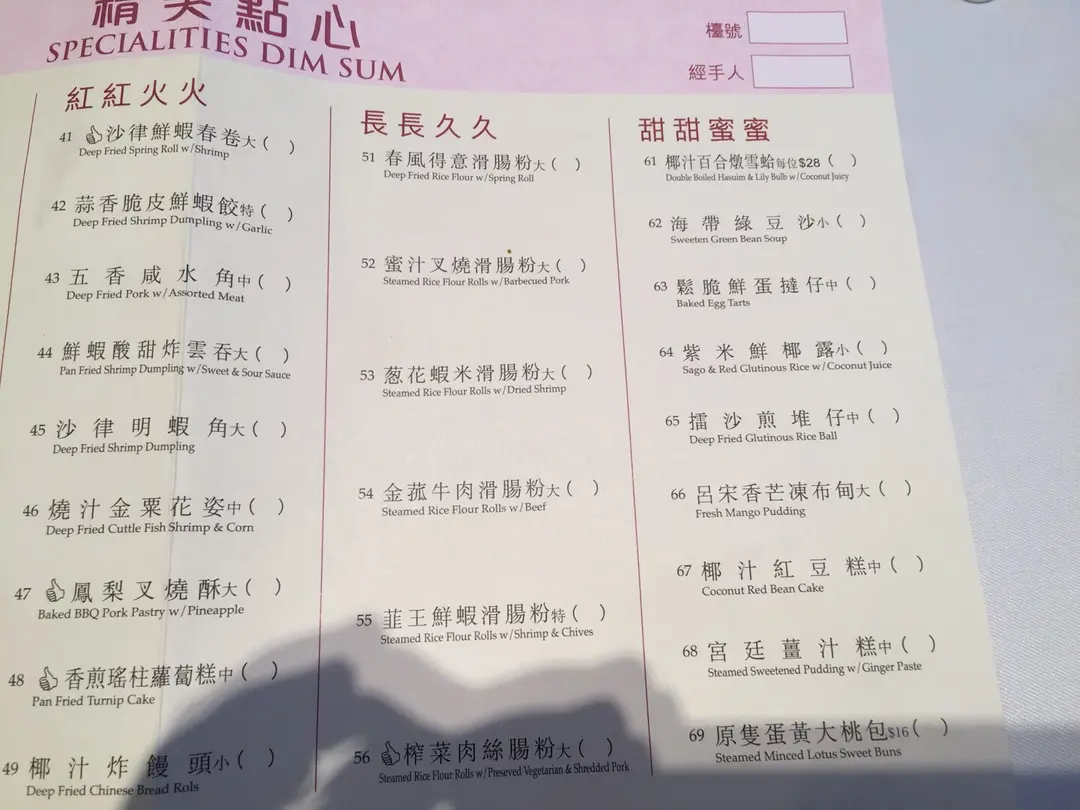 精美點心
SPECIALITIES DIM SUM
檯號
經手人
紅紅火火
41 沙律鮮蝦春卷大 ( )
Deep Fried Spring Roll w/Shrimp
42 蒜香脆皮鮮蝦餃特 ( )
Deep Fried Shrimp Dumpling w/Garlic
43 五香咸水角中 ( )
Deep Fried Pork w/Assorted Meat
44 鮮蝦酸甜炸雲吞大 ( )
Pan Fried Shrimp Dumpling w/Sweet & Sour Sauce
45 沙律明蝦角大 ( )
Deep Fried Shrimp Dumpling
46 燒汁金粟花姿中 ( )
Deep Fried Cuttle Fish Shrimp & Corn
47 鳳梨叉燒酥大 ( )
Baked BBQ Pork Pastry w/Pineapple
48 香煎瑤柱蘿蔔糕中 ( )
Pan Fried Turnip Cake
49 椰汁炸饅頭小 ( )
Deep Fried Chinese Bread Rols
長長久久
51 春風得意滑腸粉大 ( )
Deep Fried Rice Flour w/Spring Roll
52 蜜汁叉燒滑腸粉大 ( )
Steamed Rice Flour Rolls w/Barbecued Pork
53 葱花蝦米滑腸粉大 ( )
Steamed Rice Flour Rolls w/Dried Shrimp
54 金菰牛肉滑腸粉大 ( )
Steamed Rice Flour Rolls w/Beef
55 韮王鮮蝦滑腸粉特 ( )
Steamed Rice Flour Rolls w/Shrimp & Chives
56 榨菜肉絲腸粉大 ( )
Steamed Rice Flour Rolls w/Preseved Vegetarian & Shredded Pork
甜甜蜜蜜
61 椰汁百合燉雪蛤每位$28 ( )
Double Boiled Hasuim & Lily Bulb w/Coconut Juicy
62 海帶綠豆沙小 ( )
Sweeten Green Bean Soup
63 鬆脆鮮蛋撻仔中 ( )
Baked Egg Tarts
64 紫米鮮椰露小 ( )
Sago & Red Glutinous Rice w/Coconut Juice
65 擂沙煎堆仔中 ( )
Deep Fried Glutinous Rice Ball
66 呂宋香芒凍布甸大 ( )
Fresh Mango Pudding
67 椰汁紅豆糕中 ( )
Coconut Red Bean Cake
68 宮廷薑汁糕中 ( )
Steamed Sweetened Pudding w/Ginger Paste
69 原隻蛋黃大桃包$16 ( )
Steamed Minced Lotus Sweet Buns